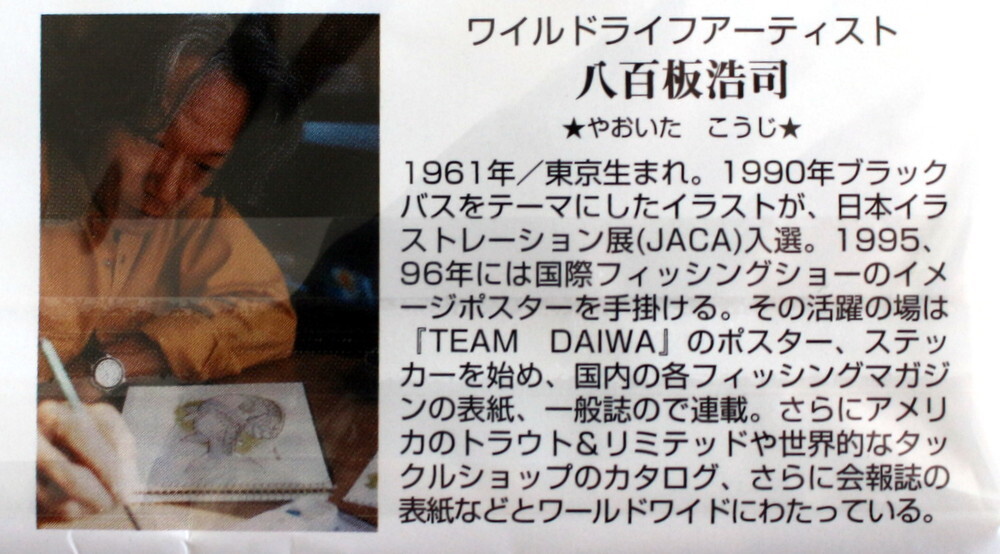 ワイルドライフアーティスト
八百板浩司
★やおいた　こうじ★
1961年／東京生まれ。1990年ブラック
バスをテーマにしたイラストが、日本イラ
ストレーション展(JACA)入選。1995、
96年には国際フィッシングショーのイメ
ージポスターを手掛ける。その活躍の場は
『TEAM　DAIWA』のポスター、ステッ
カーを始め、国内の各フィッシングマガジ
ンの表紙、一般誌ので連載。さらにアメリ
カのトラウト&リミテッドや世界的なタッ
クルショップのカタログ、さらに会報誌の
表紙などとワールドワイドにわたっている。